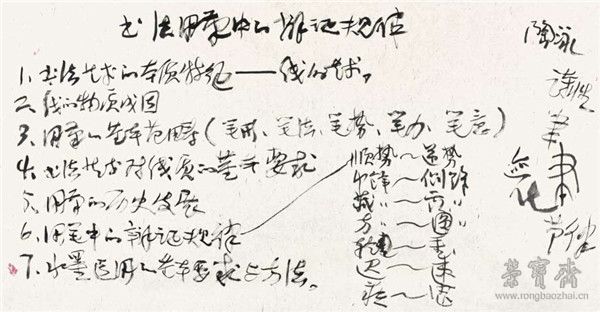 书法用笔中的辩证规律
1、书法艺术的本质特征——线的艺术。
2、线的物质成因
3、用笔的基本范围（笔形、笔法、笔势、笔力、笔意）
4、书法艺术对线质的基本要求
5、用笔的历史发展
6、用笔中的辩证规律
7、水墨运用的基本要求与方法。
顺势～逆势
中锋～侧锋
藏〃～露〃
方～圆
轻～重
迟～速
疾～涩
陶泳
荣宝斋
www.rongbaozhai.cn